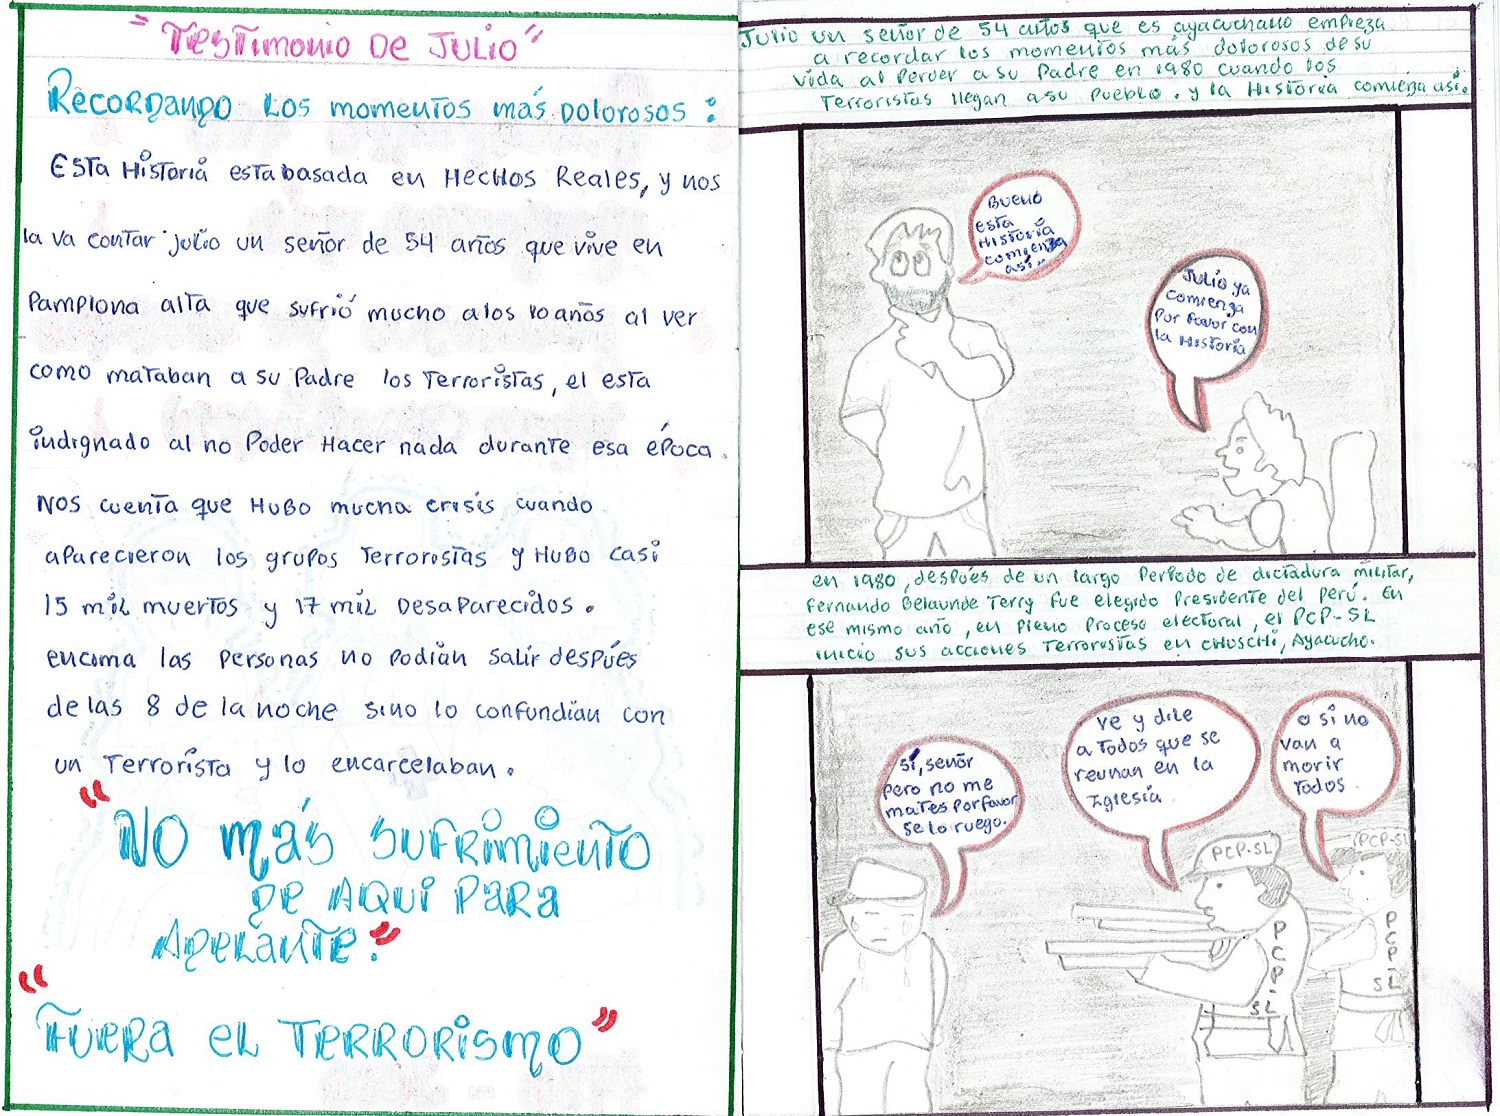 "Testimonio De Julio"
Recordando los momentos más Dolorosos:
Esta Historia esta basada en Hechos Reales, y nos
la va contar julio un señor de 54 años que vive en
Pamplona alta que sufrió mucho a los 10 años al ver
como mataban a su Padre los Terroristas, el esta
indignado al no Poder Hacer nada durante esa época.
Nos cuenta que Hubo mucha crisis cuando
aparecieron los grupos Terroristas y Hubo casi
15 mil muertos y 17 mil Desaparecidos.
encima las personas no podían salir después
de las 8 de la noche sino lo confundían con
un Terrorista y lo encarcelaban.
"No más sufrimiento
de aquí para
Adelante."
"Fuera el Terrorismo"
Julio un señor de 54 años que es ayacuchano empieza
a recordar los momentos más dolorosos de su
vida al Perder a su Padre en 1980 cuando los
Terroristas llegan a su Pueblo. y la Historia comienza así.
Bueno
esta
Historia
comienza
así..
Julio ya
comienza
Por favor con
la Historia
en 1980, después de un largo Periodo de dictadura militar,
Fernando Belaunde Terry fue elegido Presidente del Perú. En
ese mismo año, en pleno Proceso electoral, el PCP-SL
inicio sus acciones Terroristas en CHUSCHI, Ayacucho.
Sí, señor
pero no me
mates Por favor
se lo ruego.
ve y dile
a Todos que se
reunan en la
Iglesia
o si no
van a
morir
Todos
PCP-SL
PCP-SL
(PCP-SL
PCP-SL